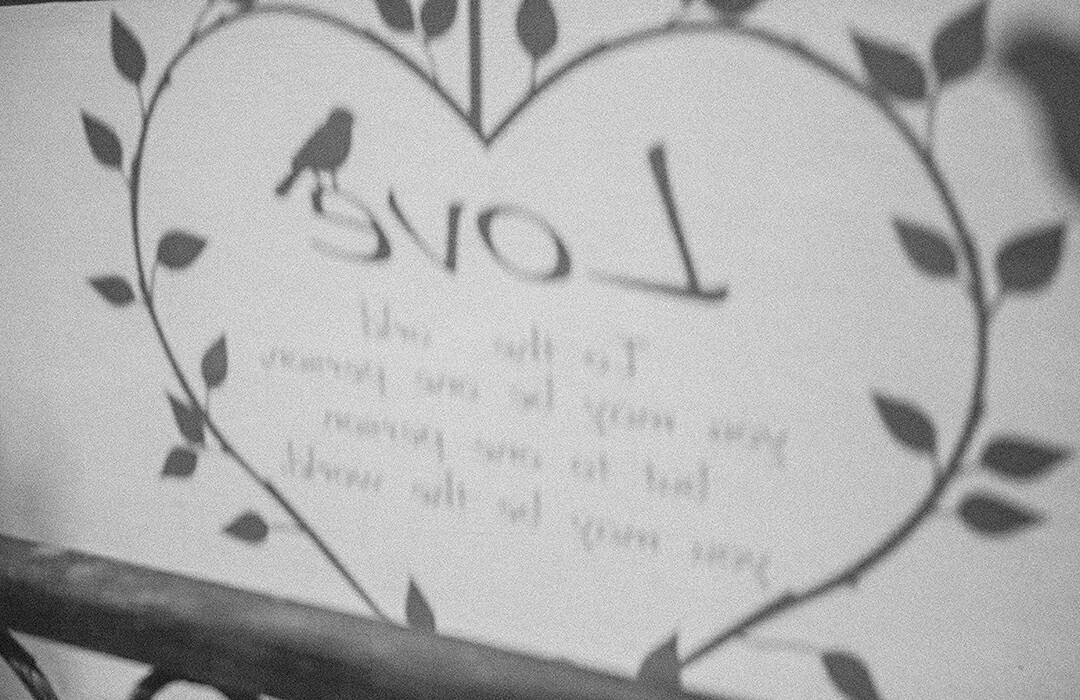 Love
To the world
you may be one person
but to one person
you may be the world